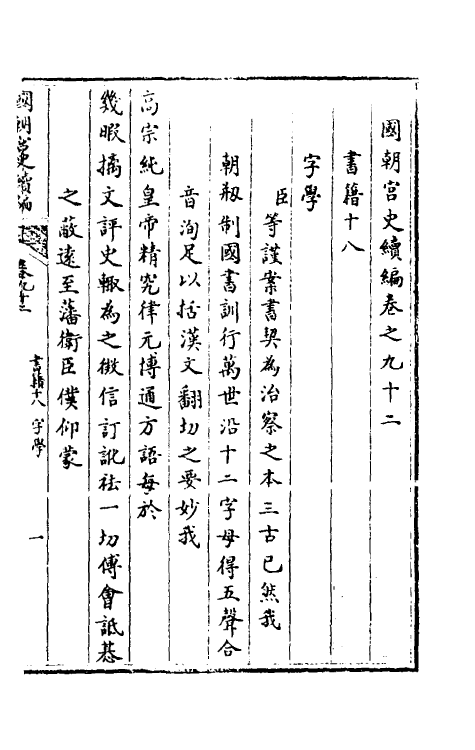 國朝宮史續編卷之九十二
書籍十八
字學
臣等謹案書契為治察之本三古已然我
朝剏制國書訓行萬世沿十二字母得五聲合
音洵足以括漢文翻切之要妙我
高宗純皇帝精究律元博通方語每於
幾暇摛文評史輙為之徵信訂訛祛一切傅會詆諆
之蔽遠至藩衛臣僕仰蒙
國朝宮史續編
卷九十二
書籍十八 字學
一